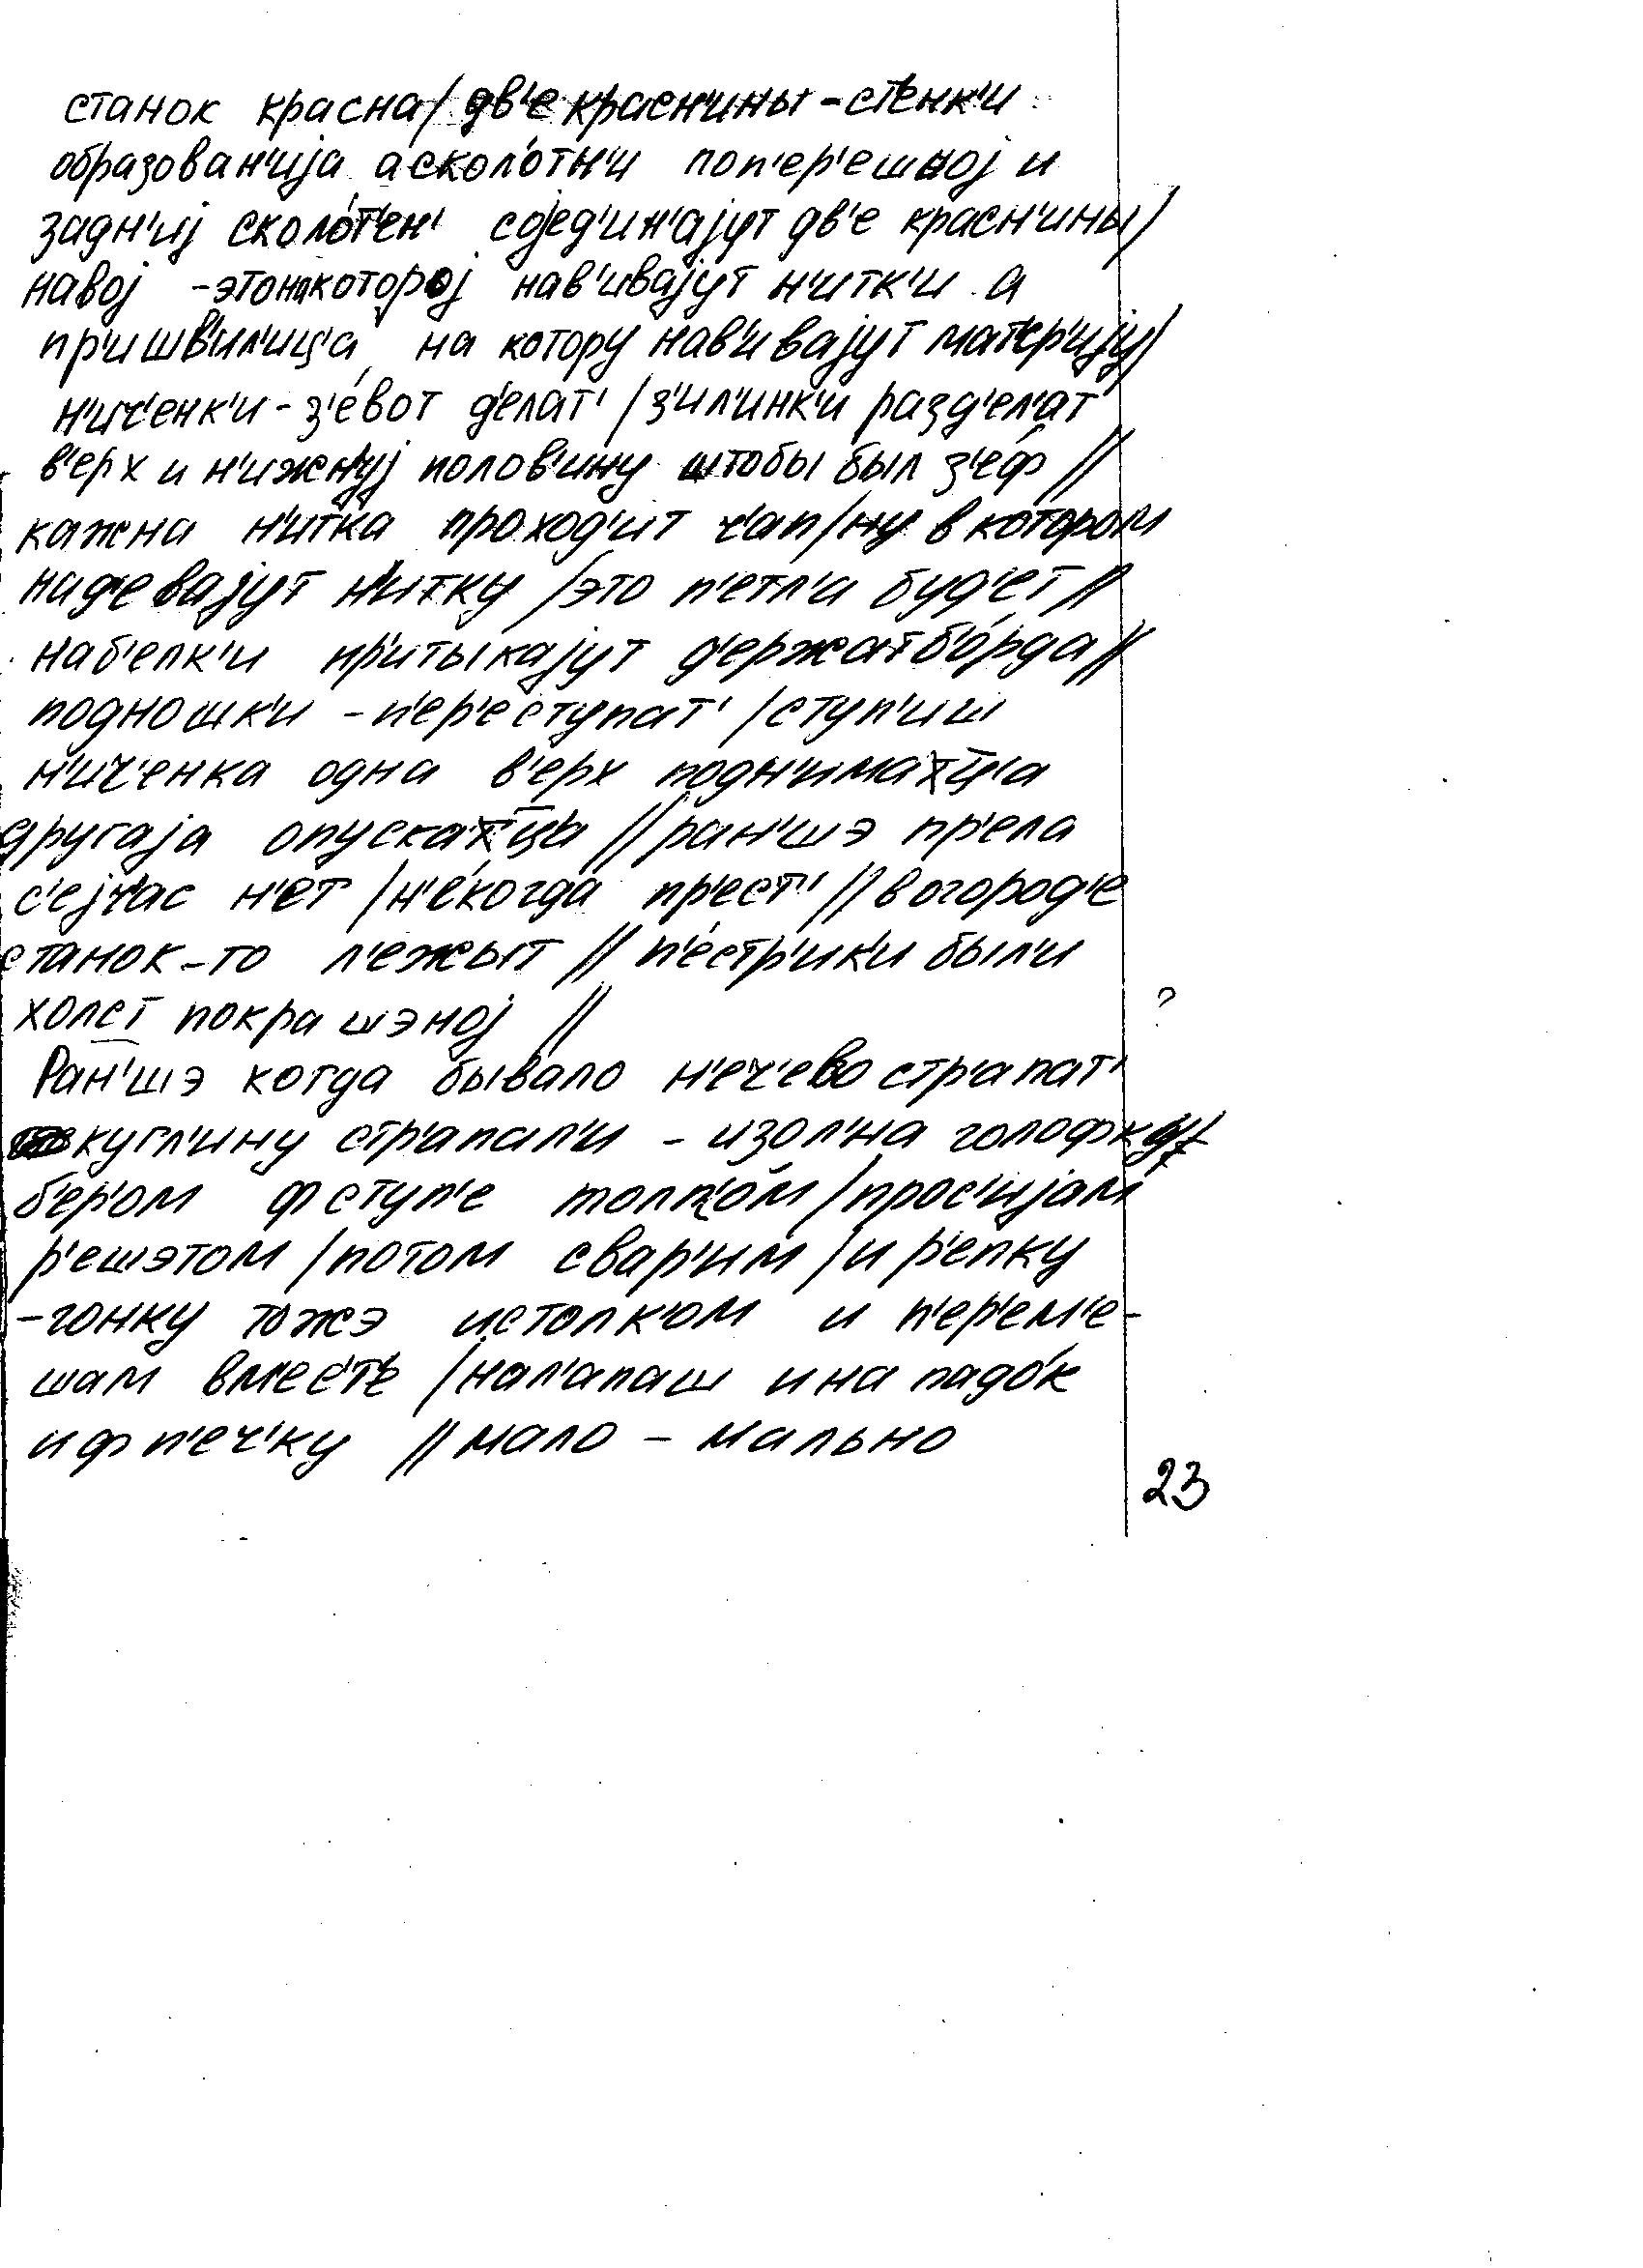 станок красна / дв'е красн'ины - ст'енк'и
образован'ија а скол'отн'и поп'ер'ешној и
задн'иј скол'о́т'ен' сјед'ин'ајут дв'е красн'ины /
навој - это на которој нав'ивајут н'итк'и а
пр'ишв'ил'ица на котору нав'ивајут мат'ер'ију /
н'ич'енк'и - з'е́вот д'елат' / з'ил'инк'и разд'ел'ат
в'ерх и н'ижнуј полов'ину штобы был з'е́ф //
кажна н'итка проход'ит ч'ап / ну в котором
над'евајут н'итку / это п'етл'а буд'ет //
наб'елк'и пр'итыкајут д'ержат б'о́рда //
подношк'и - п'ер'еступат' / ступ'иш
н'ич'енка одна в'ерх подн'имат̅ц'а
другаја опускат̅ца // ран'шэ пр'ела
с'ејч'ас н'ет / н'е́когда пр'ест' // в огород'е
станок-то л'ежыт // п'естр'ик'и был'и
холст покрашэној // ?
Ран'шэ когда бывало н'еч'ево стр'апат'
кугл'ину стр'апал'и - изол'на голофку
б'ер'ом ф ступ'е толк'ом / прос'ијам
р'ешэтом / потом свар'им / и р'епку
-гонку тожэ истолк'ом и п'ер'ем'е-
шам вместе / нал'апаш и на падо́к
и ф п'еч'ку // мало - мально
23